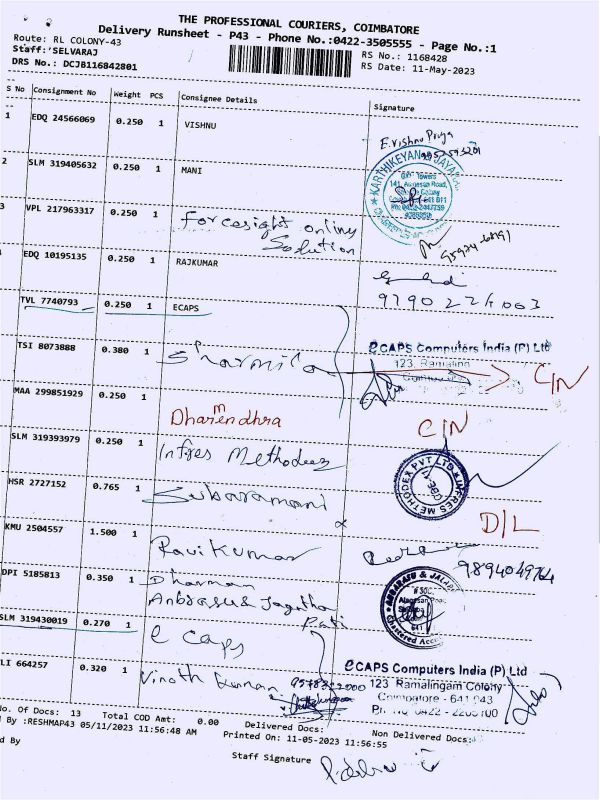 THE PROFESSIONAL COURIERS, COIMBATORE
Delivery Runsheet - P43 - Phone No.:0422-3505555 - Page No.:1
Route: RL COLONY-43
Staff:'SELVARAJ
DRS No.: DCJB116842801
RS No.: 1168428
RS Date: 11-May-2023
S No Consignment No Weight PCS Consignee Details Signature
1 EDQ 24566069 0.250 1 VISHNU
E.Vishnu Priya
2 SLM 319405632 0.250 1 MANI
3 VPL 217963317 0.250 1 Forcesight online
Solution
EDQ 10195135 0.250 1 RAJKUMAR
TVL 7740793 0.250 1 ECAPS
eCAPS Computers India (P) Ltd
123, Ramalingam
TSI 8073888 0.380 1 Sharmila
C/N
MAA 299851929 0.250 1 Dharmendhra
C/N
SLM 319393979 0.250 1 Infres Methodex
INFRES METHODEX PVT LTD
HSR 2727152 0.765 1 Subaramani
D/L
KMU 2504557 1.500 1 Ravi Kumar
9894049764
DPI 5185813 0.350 1 Dharman
Anbrasu & Jagatha
Pati
SLM 319430019 0.270 1 e caps
eCAPS Computers India (P) Ltd
123 Ramalingam Colony
Coimbatore - 641 043
LI 664257 0.320 1 Vinoth Kumar
No. Of Docs: 13 Total COD Amt: 0.00 Delivered Docs: Non Delivered Docs:
d By :RESHMAP43 05/11/2023 11:56:48 AM Printed On: 11-05-2023 11:56:55
d By
Staff Signature